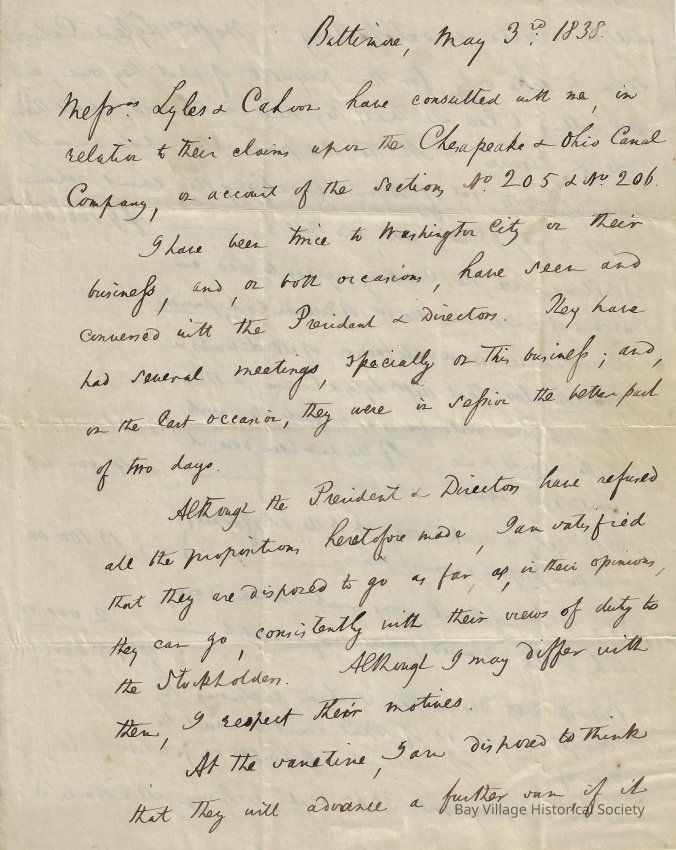 Baltimore, May 3rd. 1838.
Messrs Lyles & Cahoon have consulted with me, in
relation to their claims upon the Chesapeake & Ohio Canal
Company, on account of the sections No. 205 & No. 206.
I have been twice to Washington City on their
business, and, on both occasions, have seen and
conversed with the President & Directors. They have
had several meetings, specially on this business; and,
on the last occasion, they were in session the better part
of two days.
Although the President & Directors have refused
all the propositions heretofore made, I am satisfied
that they are disposed to go as far, as, in their opinions,
they can go, consistently with their views of duty to
the Stockholders. Although I may differ with
them, I respect their motives
At the same time, I am disposed to think
that they will advance a further sum if it
Bay Village Historical Society